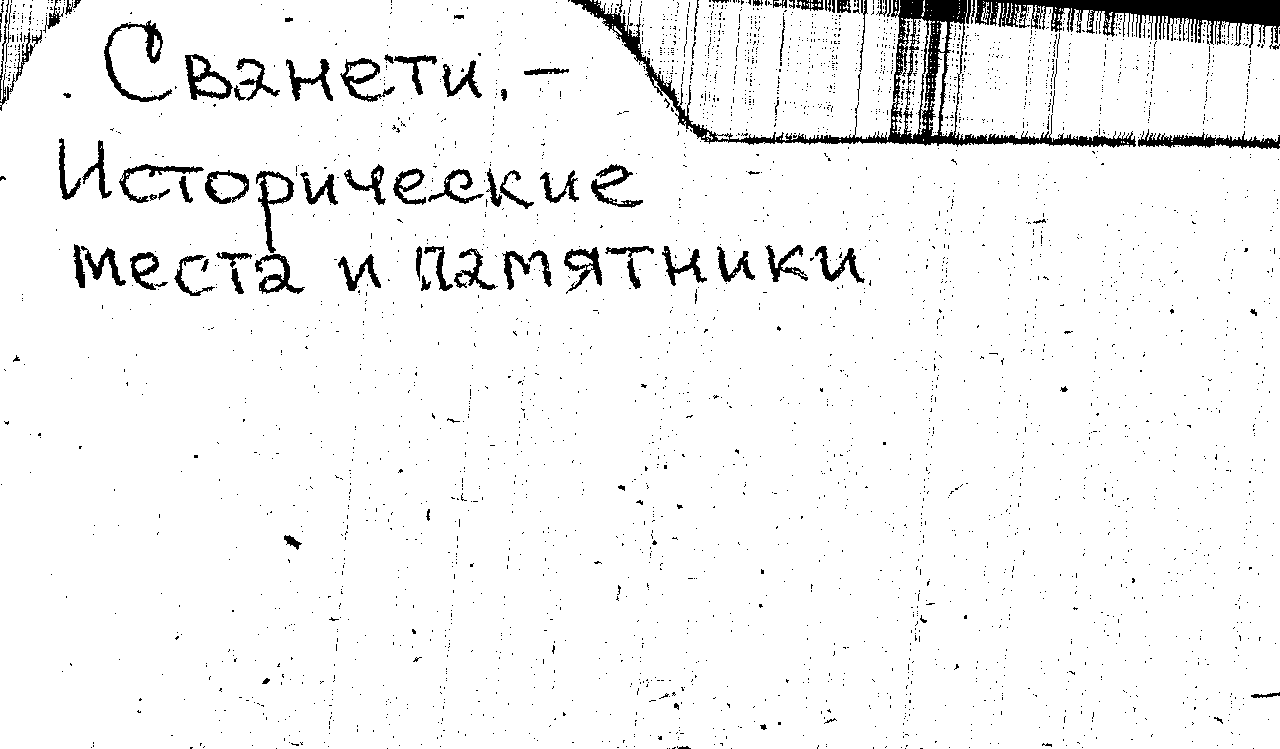 Сванети. –
Исторические
места и памятники